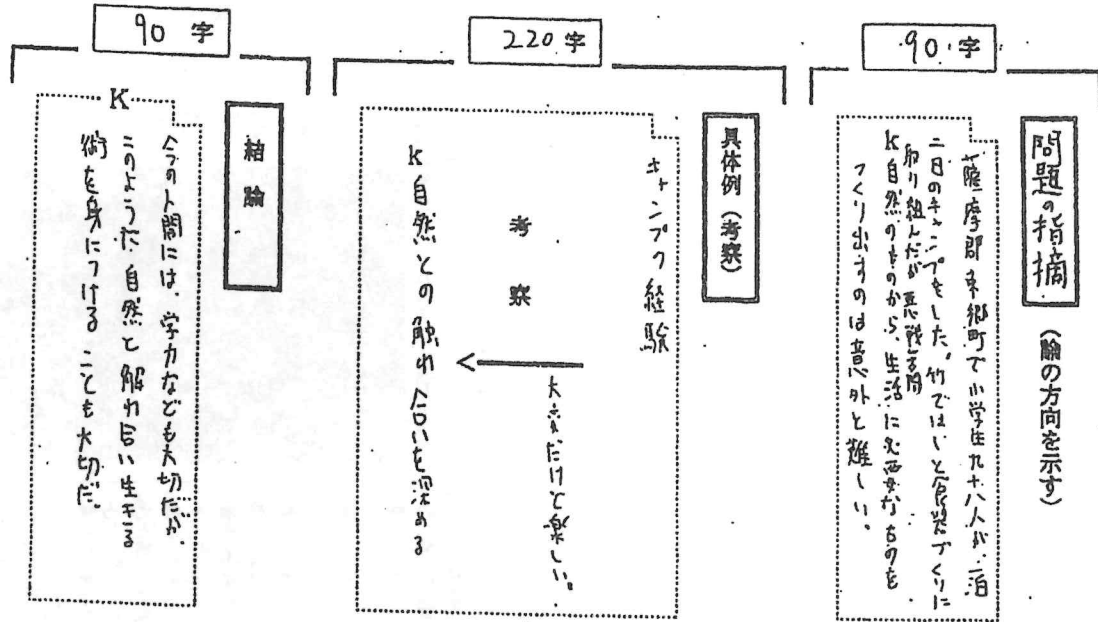 90字
問題の指摘
(論の方向を示す)
薩摩郡東郷町で小学生九十八人が、一泊
二日のキャンプをした。竹ではしと食器づくりに
取り組んだが悪戦苦闘
K 自然のものから、生活に必要なものを
つくり出すのは意外と難しい。
220字
具体例(考察)
キャンプの経験
大変だけど楽しい。
考察
K 自然との触れ合いを深める
90字
結論
K
今の人間には、学力なども大切だが、
このような自然と触れ合い生きる
術を身につけることも大切だ。